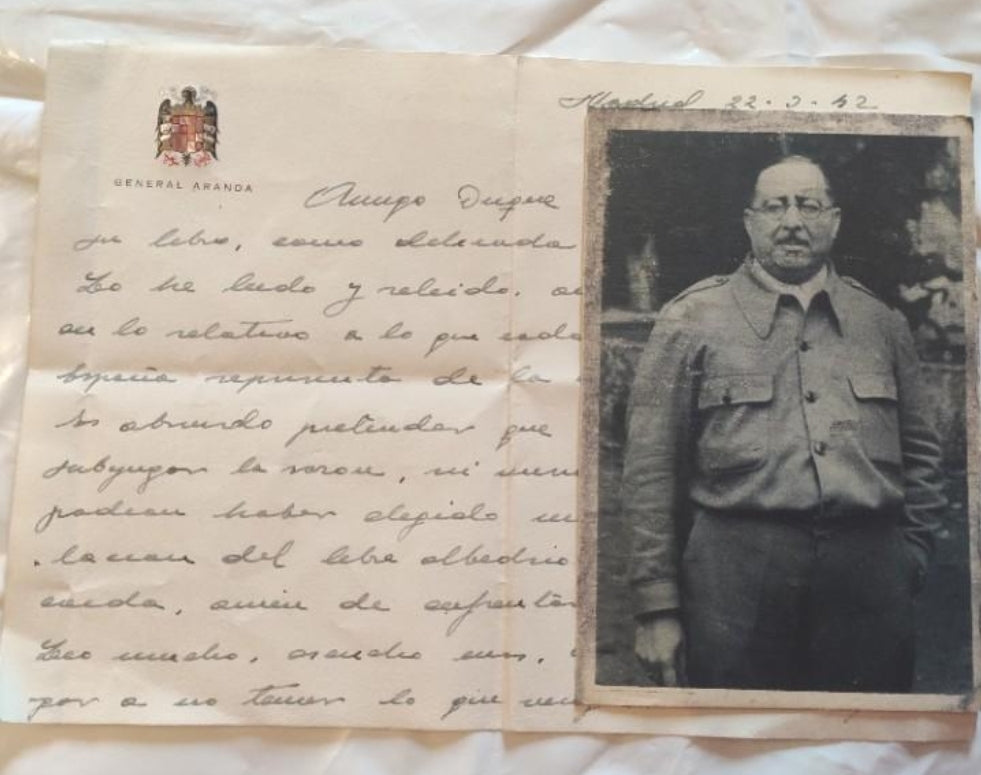 Madrid 22.3.42
GENERAL ARANDA
Amigo Duque
su libro, como delicada
Lo he leido y releido.
en lo relativo a lo que cada
España representa de la
Es absurdo pretender que
subyugar la razon, ni
podian haber elegido
del libre albedrio
amen de
Leo mucho, escucho mas,
por a no temer lo que